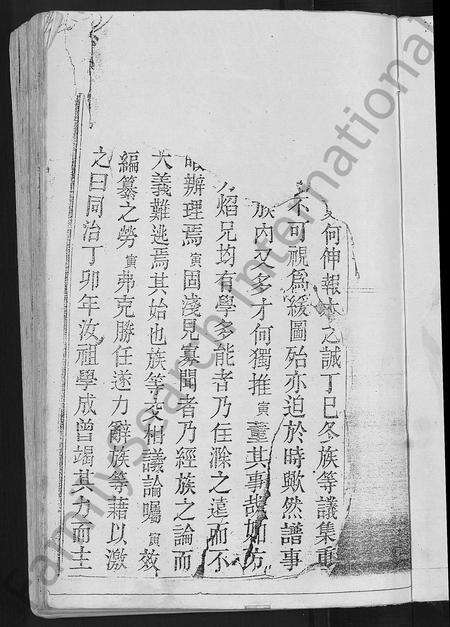 何伸報本之誠丁巳冬族等議集重
不可視爲緩圖殆亦迫於時歟然譜事
族內又多才何獨推寅董其事哉如方
焰兄均有學多能者乃任滁之遠而不
辦理焉寅固淺見寡聞者乃經族之論而
大義難逃焉其始也族等交相議論囑寅效
編纂之勞寅弗克勝任遂力辭族等藉以激
之曰同治丁卯年汝祖學成曾竭其力而主
FamilySearch International